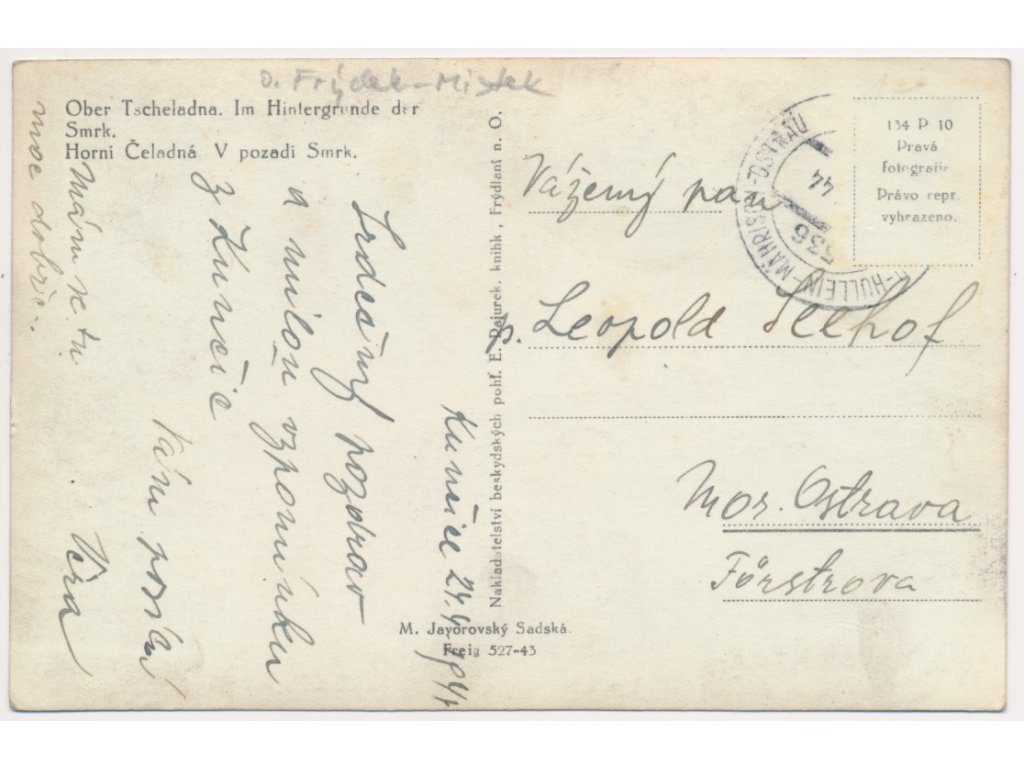 o. Frýdek-Místek
Ober Tscheladna. Im Hintergrunde der
Smrk.
Horní Čeladná V pozadí Smrk.
Kunčice 24.4 1944
Srdečný pozdrav
a milou vzpomínku
z Kunčic
Vám posílá
Věra
Mám se tu
moc dobře.
Nakladatelství beskydských pohl. E. Pajurek. knihk., Frýdlant n. O.
M. Javorovský Sadská.
Freig 527-43
HULLEIN-MÄHRISCH-OSTRAU
44
536
134 P 10
Pravá
fotografie
Právo repr.
vyhrazeno.
Vážený pan
p. Leopold Seehof
Mor. Ostrava
Förstrova